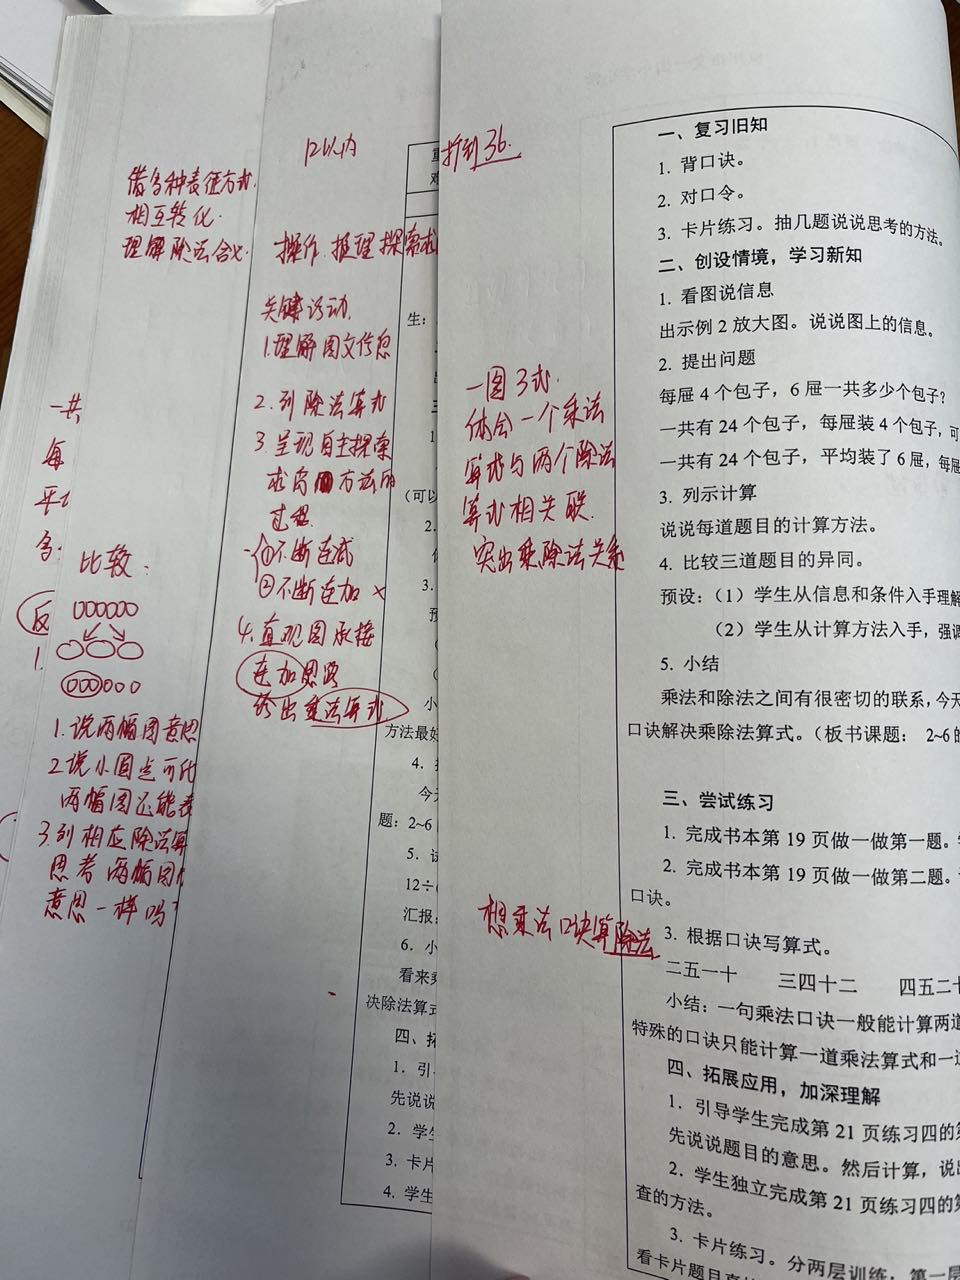 借多种表征方式.
相互转化.
理解除法含义.
一共
每
平
多:
比较.
反
1.
1.说两幅图意思
2.说小圆点可
两幅图还能表
3.列相应除法算
思考两幅图
意思一样吗?
12以内
操作.推理探索
关键活动.
1.理解图文信息
2.列除法算式
3.呈现自主探索
求商的方法的
过程.
①不断连减
②不断连加 ×
4.直观图承接
连加思路
修出乘法算式
重
难
生:
(可以
2.
3.
预
小
方法最好
4.
今天
题: 2~6
5. 试
12÷
汇报:
6. 小
看来乘
决除法算式
四、拓
1. 引
先说说
2. 学生
3. 卡片
4. 学生
扩到36.
一图3式.
体会一个乘法
算式与两个除法
算式相关联.
突出乘除法关系
想乘法口诀算除法
一、复习旧知
1. 背口诀。
2. 对口令。
3. 卡片练习。抽几题说说思考的方法。
二、创设情境，学习新知
1. 看图说信息
出示例 2 放大图。说说图上的信息。
2. 提出问题
每屉 4 个包子，6 屉一共多少个包子?
一共有 24 个包子，每屉装 4 个包子，可
一共有 24 个包子，平均装了 6 屉，每屉
3. 列示计算
说说每道题目的计算方法。
4. 比较三道题目的异同。
预设：（1）学生从信息和条件入手理解
（2）学生从计算方法入手，强调
5. 小结
乘法和除法之间有很密切的联系，今天
口诀解决乘除法算式。（板书课题： 2~6的
三、尝试练习
1. 完成书本第 19 页做一做第一题。
2. 完成书本第 19 页做一做第二题。
口诀。
3. 根据口诀写算式。
二五一十 三四十二 四五二十
小结：一句乘法口诀一般能计算两道
特殊的口诀只能计算一道乘法算式和一道
四、拓展应用，加深理解
1. 引导学生完成第 21 页练习四的第
先说说题目的意思。然后计算，说出
2. 学生独立完成第 21 页练习四的第
查的方法。
3. 卡片练习。分两层训练：第一层
看卡片题目直